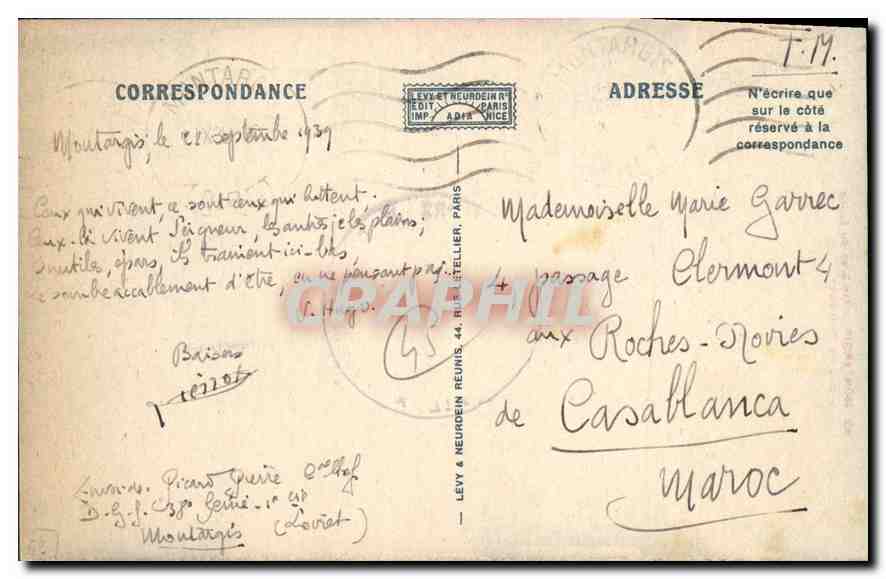 T. M.
MONTARGIS
MONTARGIS
CORRESPONDANCE
LEVY ET NEURDEIN Rs
EDIT. PARIS
IMP. ADIA NICE
ADRESSE
N'écrire que
sur le côté
réservé à la
correspondance
Montargis, le septembre 1939
Ceux qui vivent, ce sont ceux qui luttent.
Ceux-là vivent Seigneur, les autres je les plains;
Inutiles, épars, ils trainent ici-bas
le sombre accablement d'être, en ne pensant pas..
V. Hugo.
45
Baisers
Pierrot
Picard Pierre
D.G.J. 38e Génie - 1e Cie
Montargis (Loiret)
LEVY & NEURDEIN REUNIS, 44, RUE LETELLIER, PARIS
Mademoiselle Marie Garrec
4 passage Clermont 4
aux Roches-Noires
de Casablanca
Maroc
CPAPHIL